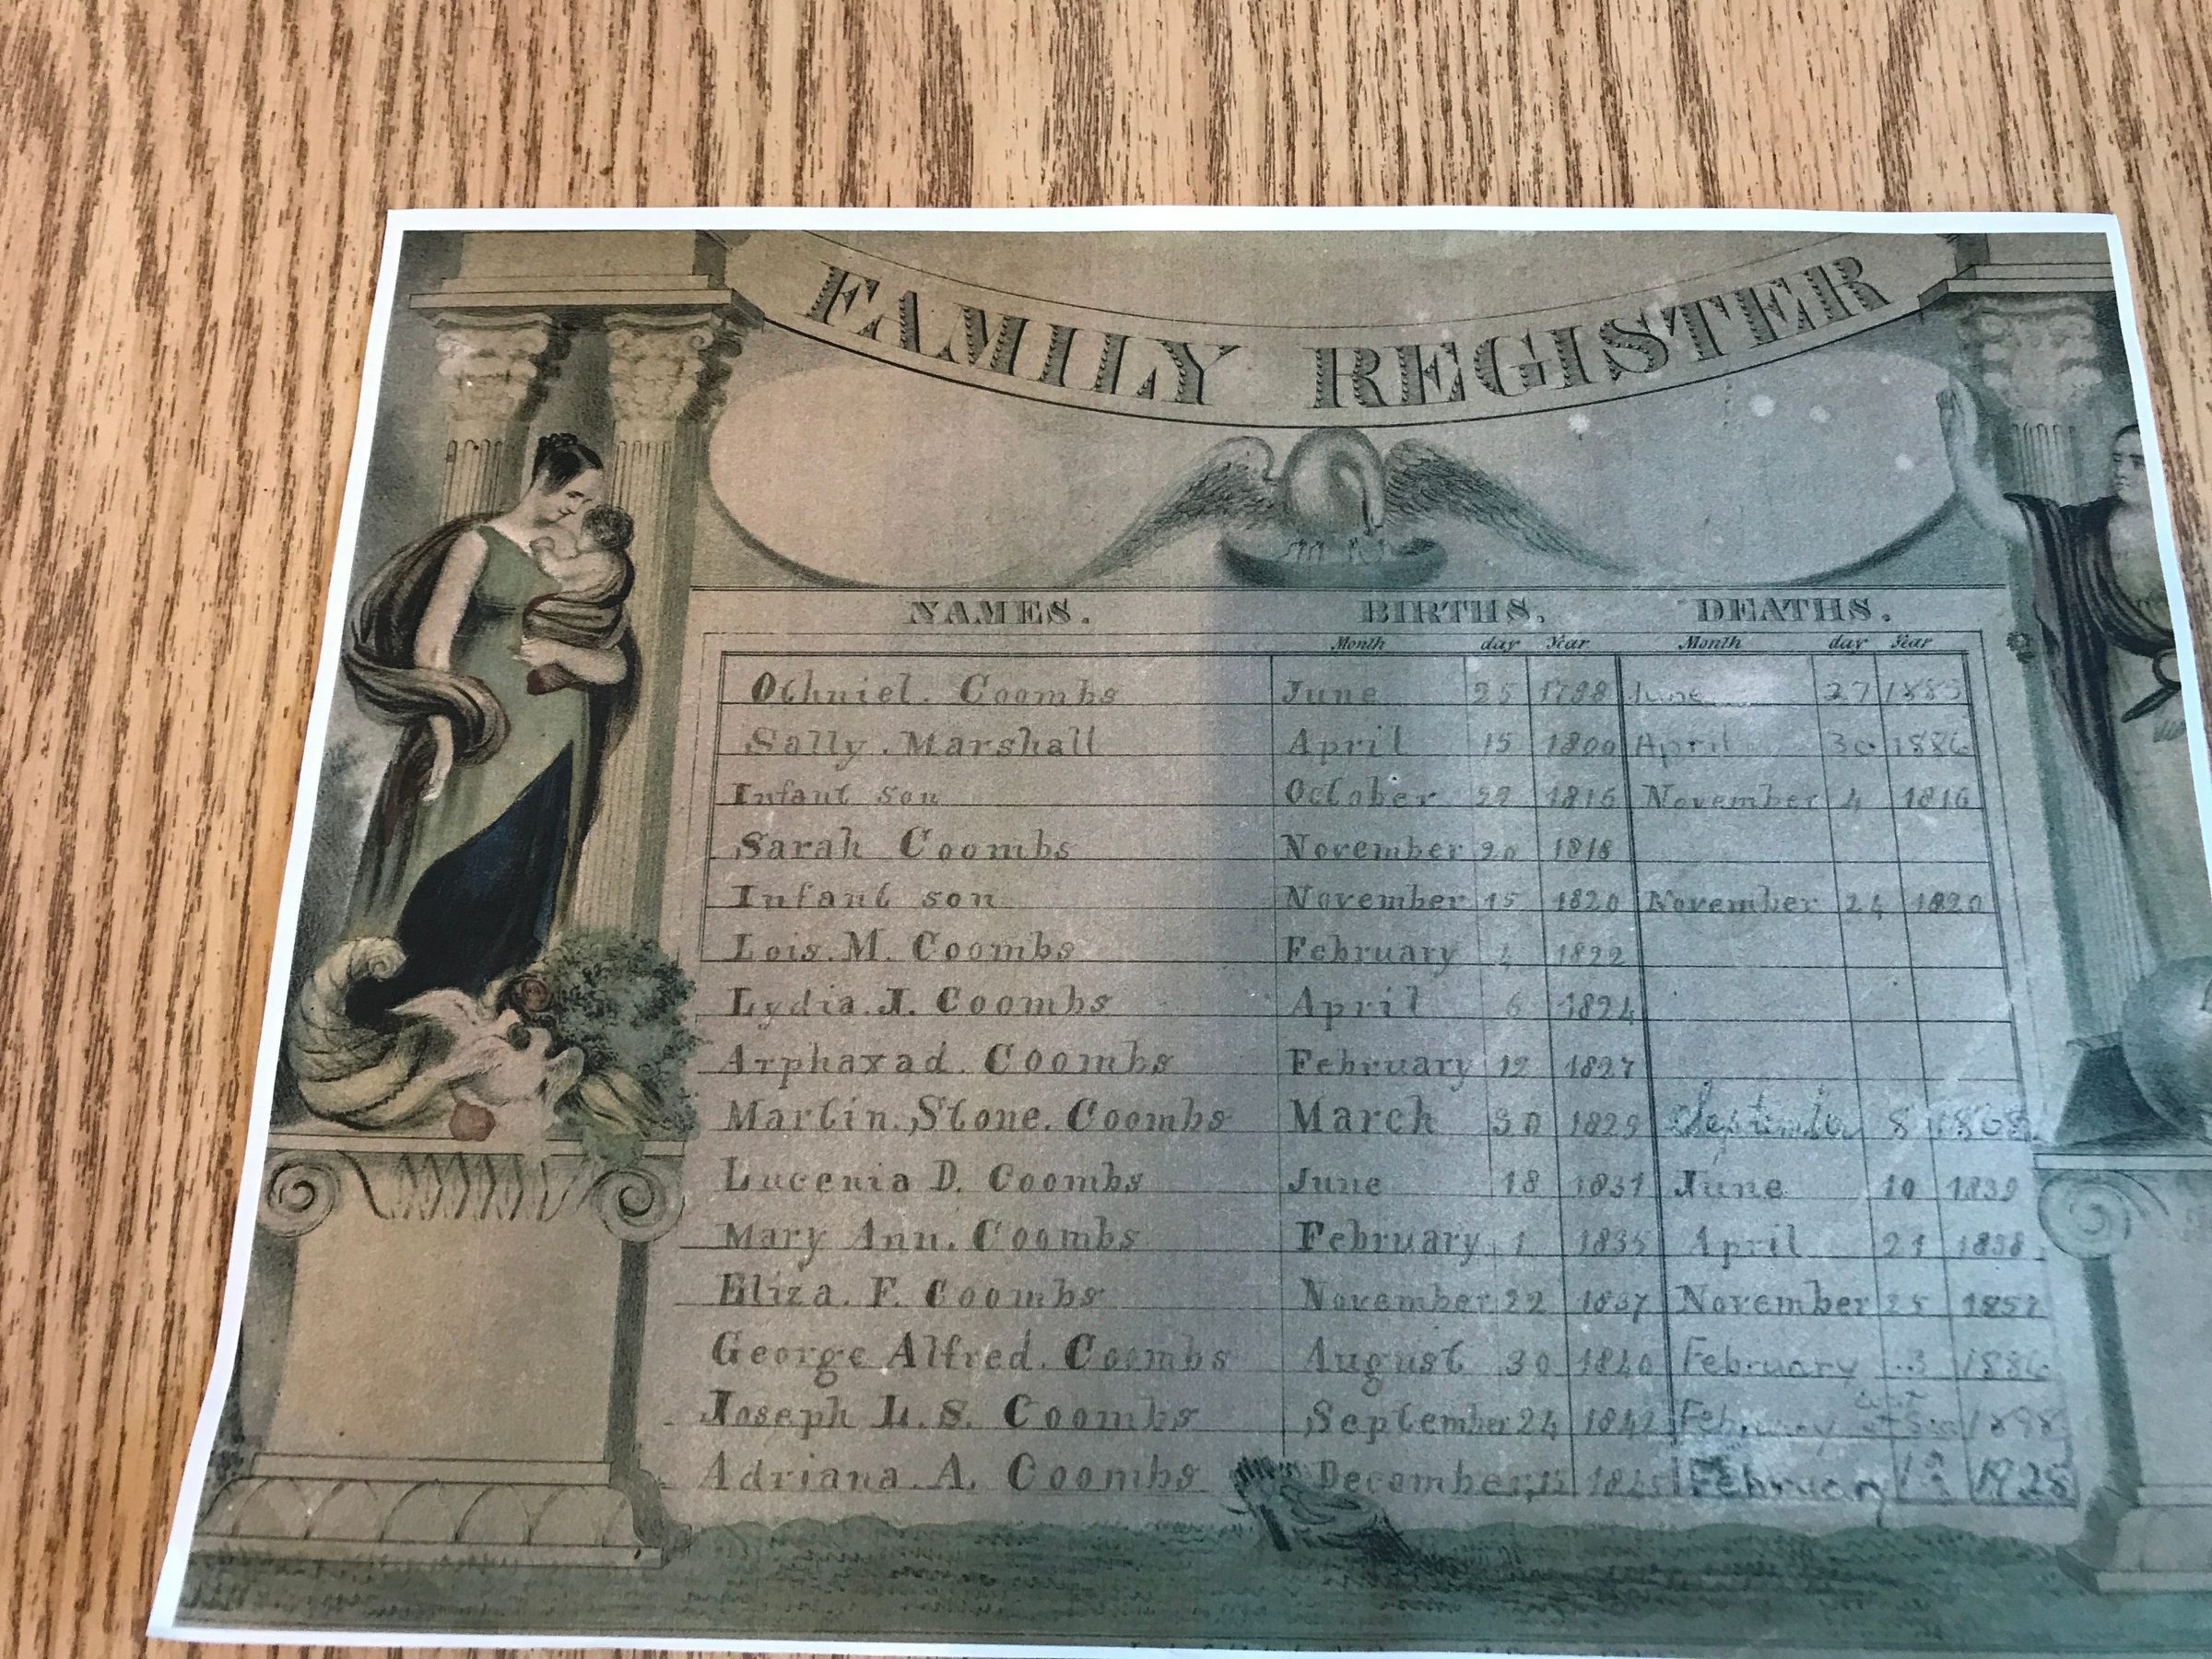 FAMILY REGISTER
NAMES. BIRTHS. DEATHS.
Month day Year Month day Year
Othniel. Coombs June 25 1798 June 27 1885
Sally. Marshall April 15 1800 April 30 1886
Infant son October 29 1816 November 4 1816
Sarah Coombs November 20 1818
Infant son November 15 1820 November 24 1820
Lois. M. Coombs February 4 1822
Lydia. J. Coombs April 6 1824
Arphaxad. Coombs February 12 1827
Martin. Stone. Coombs March 30 1829 September 8 1868
Lucenia D. Coombs June 18 1831 June 10 1839
Mary Ann. Coombs February 1 1835 April 21 1838
Eliza. F. Coombs November 22 1837 November 25 1857
George Alfred. Coombs August 30 1840 February 3 1886
Joseph L. S. Coombs September 24 1842 February 1898
Adriana A. Coombs December 15 1845 February 1928